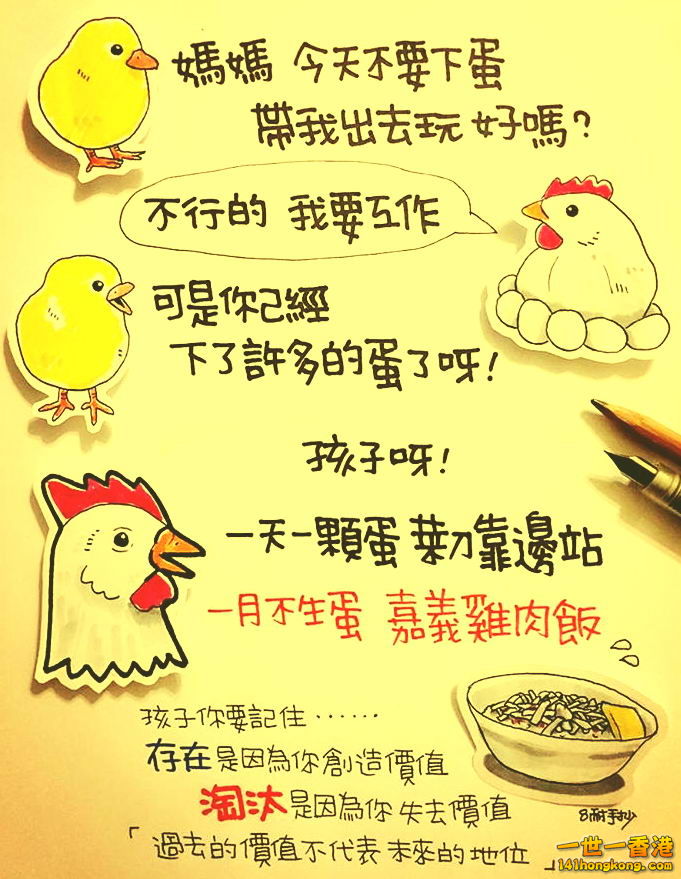 媽媽 今天不要下蛋
帶我出去玩 好嗎?
不行的 我要工作
可是你已經
下了許多的蛋了呀!
孩子呀!
一天一顆蛋 菜刀靠邊站
一月不生蛋 嘉義雞肉飯
孩子你要記住……
存在是因為你創造價值
淘汰是因為你失去價值
「過去的價值不代表未來的地位」
8耐手抄
一世一香港
141hongkong.com